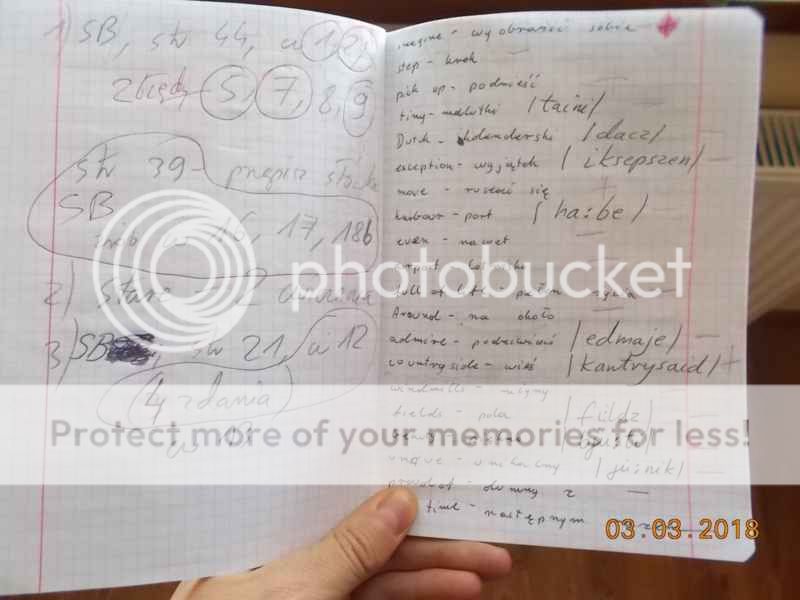 1) SB, str 44, ćw 1, 2,
5, 7, 8, 9
str 39 - przepisz słówka
SB
ćw 16, 17, 18b
2)
3) SB str 21, ćw 12
(4 zdania)
imagine - wyobrazić sobie
step - krok
pik op - podnieść
tiny - malutki /taini/
Dutch - holenderski /dacz/
exception - wyjątek /iksepszen/
move - ruszać się
harbour - port /ha:be/
even - nawet
full of life - pełen życia
Around - na około
admire - podziwiać /edmaje/
countryside - wieś /kantrysaid/
windmills - młyny
fields - pola /fildz/
unique - unikalny /ju:nik/
dumny z
time - następnym
photobucket
Protect more of your memories for less!
03.03.2018